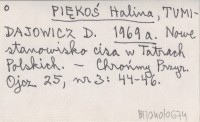 PIĘKOŚ Halina, TUMI-
DAJOWICZ D. 1969a. Nowe
stanowisko cisa w Tatrach
Polskich. — Chrońmy Przyr.
Ojcz 25, nr 3: 44-46.